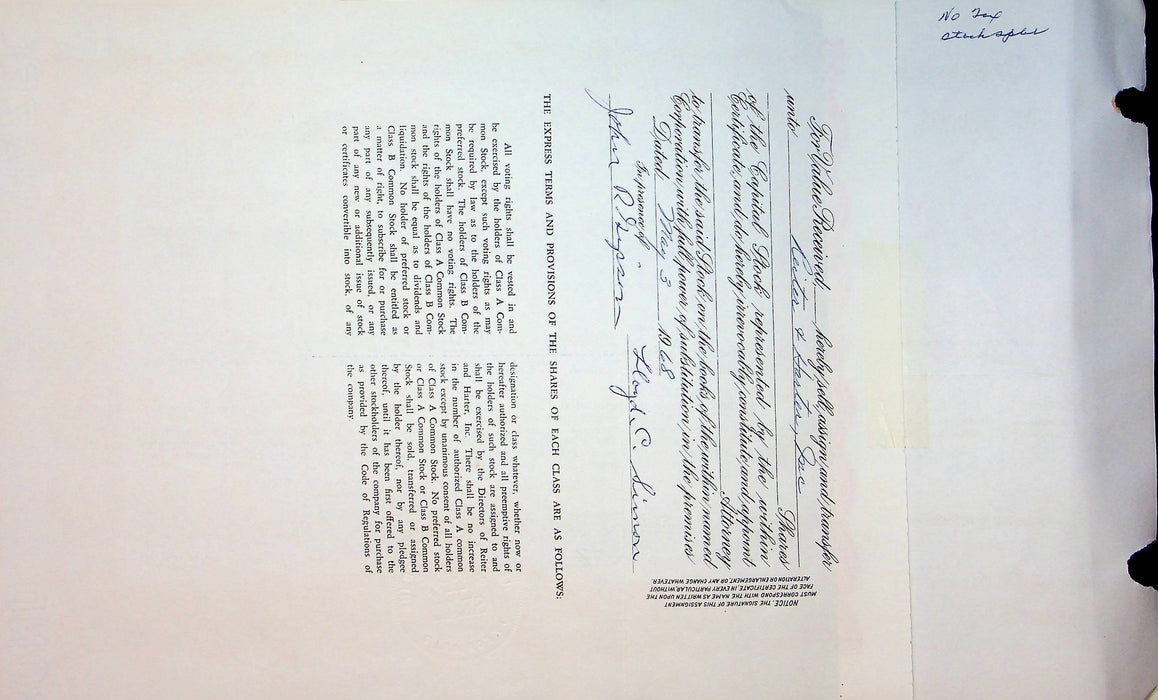 No Tax
For Value Received, hereby sell, assign and transfer
unto Reiter & Harter, Inc
Shares
of the Capital Stock represented by the within
Certificate, and do hereby irrevocably constitute and appoint
Attorney
to transfer the said Stock on the books of the within named
Corporation with full power of substitution in the premises
Dated May 3 1968
In presence of
John R Lloyd C. Simon
NOTICE. THE SIGNATURE OF THIS ASSIGNMENT
MUST CORRESPOND WITH THE NAME AS WRITTEN UPON THE
FACE OF THE CERTIFICATE, IN EVERY PARTICULAR, WITHOUT
ALTERATION OR ENLARGEMENT, OR ANY CHANGE WHATEVER.
THE EXPRESS TERMS AND PROVISIONS OF THE SHARES OF EACH CLASS ARE AS FOLLOWS:
All voting rights shall be vested in and
be exercised by the holders of Class A Com-
mon Stock, except such voting rights as may
be required by law as to the holders of the
preferred stock. The holders of Class B Com-
mon Stock shall have no voting rights. The
rights of the holders of Class A Common Stock
and the rights of the holders of Class B Com-
mon stock shall be equal as to dividends and
liquidation. No holder of preferred stock or
Class B Common Stock shall be entitled as
a matter of right, to subscribe for or purchase
any part of any subsequently issued, or any
part of any new or additional issue of stock
or certificates convertible into stock, of any
designation or class whatever, whether now or
hereafter authorized and all preemptive rights of
the holders of such stock are assigned to and
shall be exercised by the Directors of Reiter
and Harter, Inc. There shall be no increase
in the number of authorized Class A common
stock except by unanimous consent of all holders
of Class A Common Stock. No preferred stock
or Class A Common Stock or Class B Common
Stock shall be sold, transferred or assigned
by the holder thereof, nor by any pledgee
thereof, until it has been first offered to the
other stockholders of the company for purchase
as provided by the Code of Regulations of
the company.